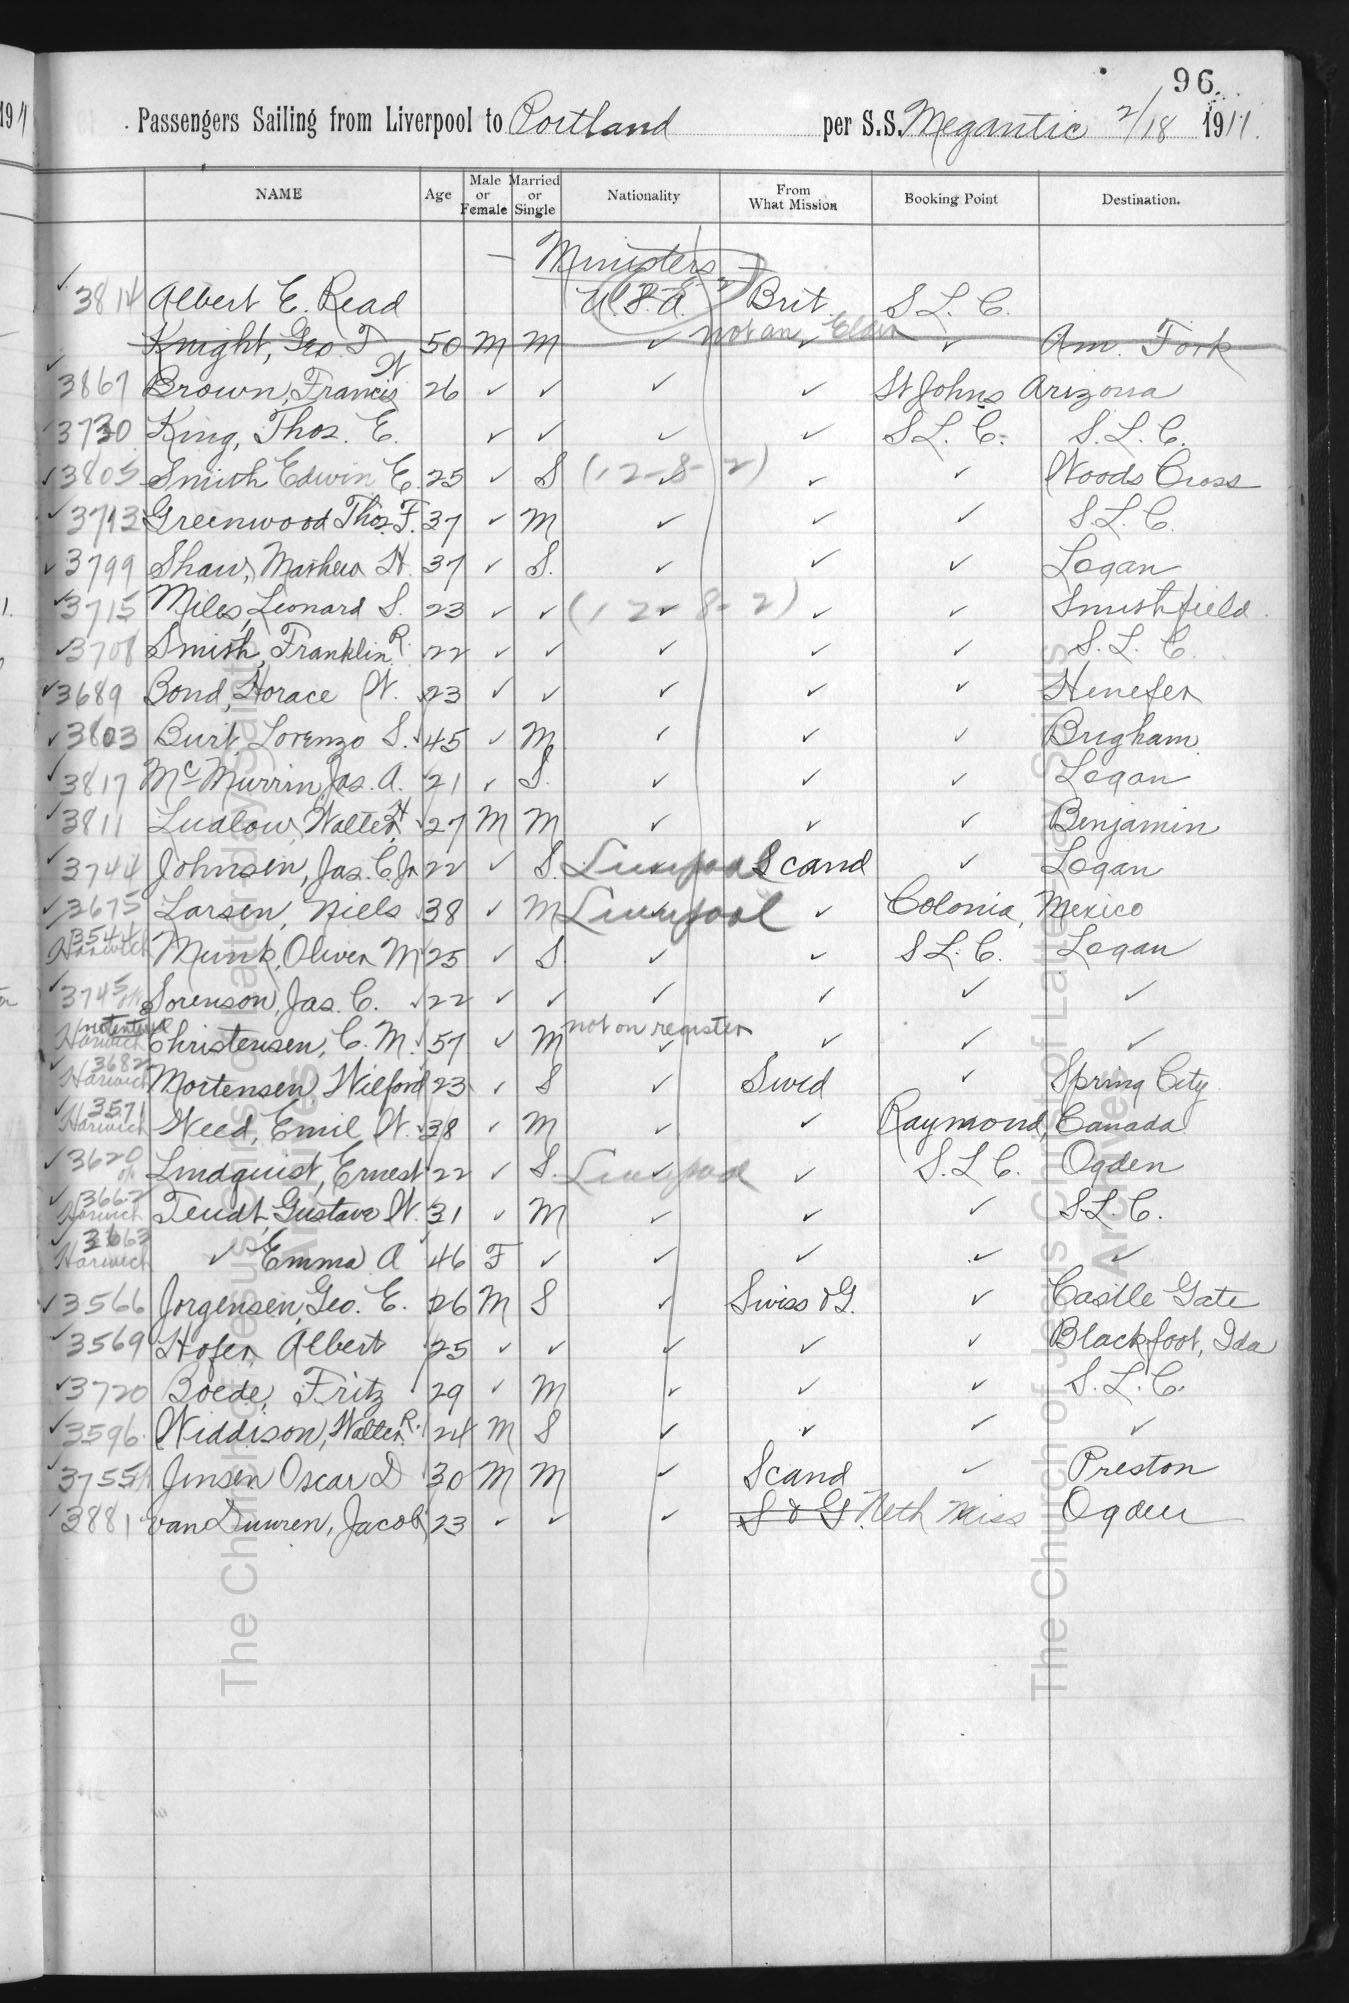 96
191
Passengers Sailing from Liverpool to Portland per S.S. Megantic 2/18 1911.
NAME Age Male or Female Married or Single Nationality From What Mission Booking Point Destination.
— Ministers —
✓ 3814 Albert E. Read U.S.A. " Brit. S. L. C.
Knight, Geo. T 50 M M ✓ not an Elder ✓ ✓ Am. Fork
✓ 3867 Brown, Francis W 26 ✓ ✓ ✓ ✓ St Johns Arizona
✓ 3730 King, Thos. E. ✓ ✓ ✓ ✓ S L. C. S. L. C.
✓ 3805 Smith Edwin E 25 ✓ S (12-8-2) ✓ ✓ ✓ Woods Cross
✓ 3713 Greenwood Thos. F. 37 ✓ M ✓ ✓ ✓ S. L. C.
✓ 3799 Shaw, Mathew H. 37 ✓ S. ✓ ✓ ✓ Logan
✓ 3715 Miles, Leonard S. 23 ✓ ✓ (12-8-2) ✓ ✓ ✓ Smithfield.
✓ 3708 Smith, Franklin R. 22 ✓ ✓ ✓ ✓ ✓ S. L. C.
✓ 3689 Bond, Horace W. 23 ✓ ✓ ✓ ✓ ✓ Henefer
✓ 3803 Burt, Lorenzo S. 45 ✓ M ✓ ✓ ✓ Brigham
✓ 3817 McMurrin, Jas. A. 21 ✓ S. ✓ ✓ ✓ Logan
✓ 3811 Ludlow, Walter H 27 M M ✓ ✓ ✓ Benjamin
✓ 3744 Johnsen, Jas. C. Jr 22 ✓ S. Liverpool Scand ✓ Logan
✓ 3675 Larsen, Niels 38 ✓ M Liverpool ✓ ✓ Colonia, Mexico
3544 Harwich Munk, Oliver M 25 ✓ S. ✓ ✓ S L. C. Logan
✓ 3745 Sorenson, Jas. C. 22 ✓ ✓ ✓ ✓ ✓ ✓
not entered Harwich Christensen, C. M. 57 ✓ M not on register ✓ ✓ ✓ ✓
✓ 3682 Harwich Mortensen Wilford 23 ✓ S ✓ Swed ✓ Spring City.
✓ 3571 Harwich Weed, Emil W. 38 ✓ M ✓ ✓ Raymond, Canada
✓ 3620 Lindquist, Ernest 22 ✓ S. Liverpool ✓ ✓ S. L C. Ogden
✓ 3662 Harwich Teudt, Gustave W. 31 ✓ M ✓ ✓ ✓ S. L. C.
✓ 3663 Harwich ✓ Emma A 46 F ✓ ✓ ✓ ✓ ✓
✓ 3566 Jorgensen, Geo. E. 26 M S ✓ Swiss & G. ✓ Castle Gate
✓ 3569 Hofer, Albert 25 ✓ ✓ ✓ ✓ ✓ Blackfoot, Ida
✓ 3720 Boede, Fritz 29 ✓ M ✓ ✓ ✓ S. L. C.
✓ 3596 Widdison, Walter R. 24 M S ✓ ✓ ✓ ✓
✓ 3755 Jensen Oscar D 30 M M ✓ Scand ✓ Preston
✓ 3881 van Buuren, Jacob 23 ✓ ✓ ✓ S & G. Neth Miss Ogden
The Church of Jesus Christ of Latter-day Saints
Archives
The Church of Jesus Christ of Latter-day Saints
Archives